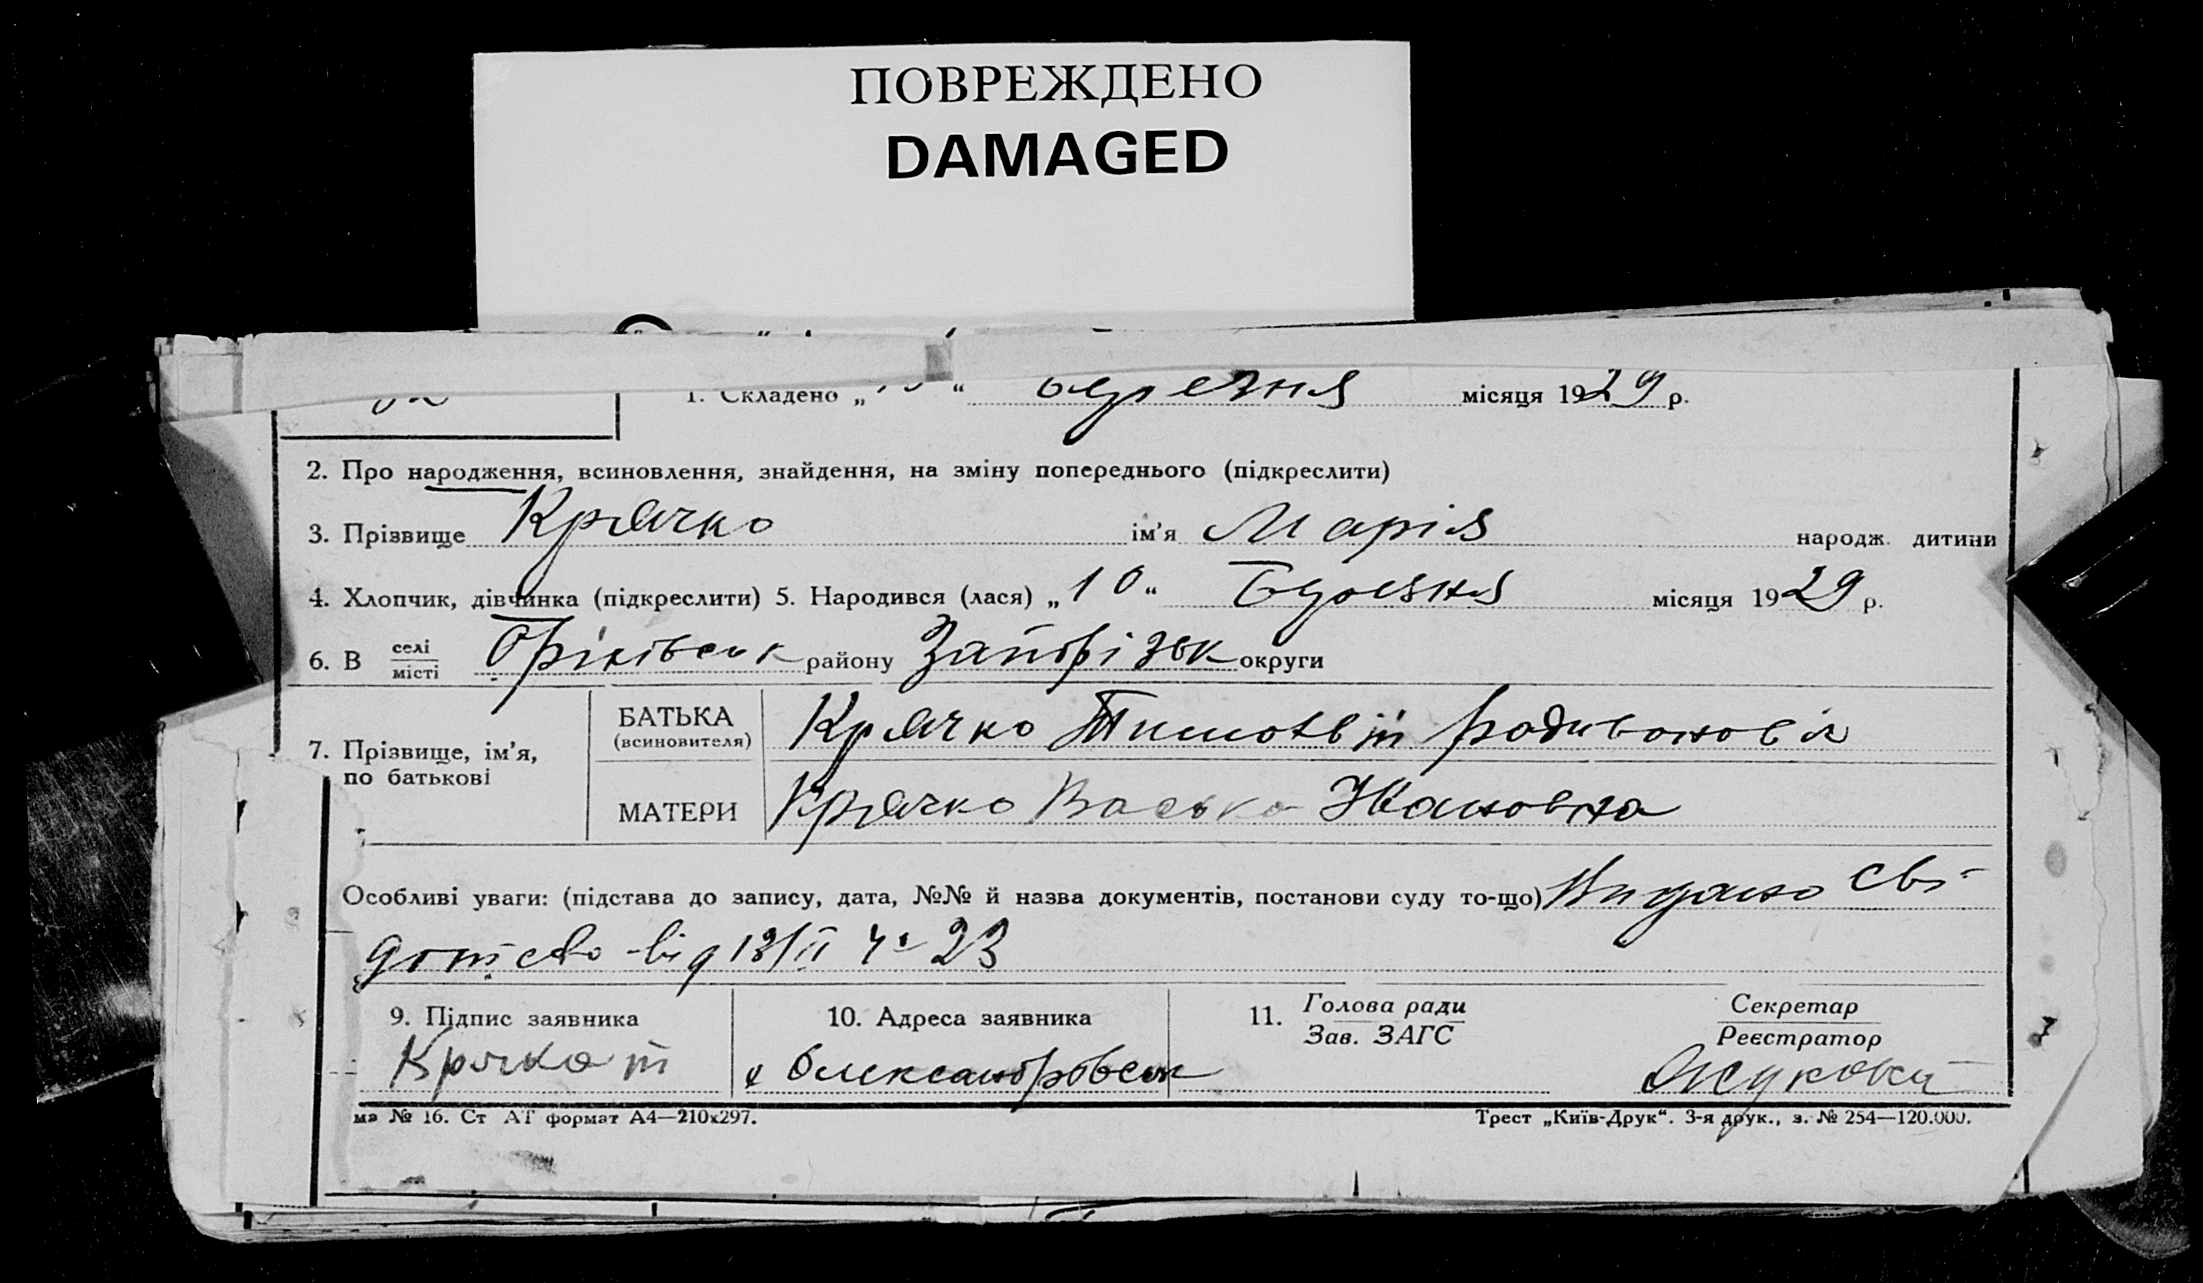 ПОВРЕЖДЕНО
DAMAGED
1. Складено „ “ березня місяця 1929 р.
2. Про народження, всиновлення, знайдення, на зміну попереднього (підкреслити)
3. Прізвище Крячко ім’я Марія народж. дитини
4. Хлопчик, дівчинка (підкреслити) 5. Народився (лася) „10“ Березня місяця 1929 р.
6. В селі місті Оріхівськ району Запорізьк округи
7. Прізвище, ім’я, по батькові
БАТЬКА (всиновителя) Крячко Тимотвій Родивонович
МАТЕРИ Крячко Васька Ивановна
Особливі уваги: (підстава до запису, дата, №№ й назва документів, постанови суду то-що) Видано сві-
доптство від 13/II 23
9. Підпис заявника
Крячко т
10. Адреса заявника
Олександровськ
11. Голова ради
Зав. ЗАГС
Секретар
Реєстратор
ма № 16. Ст АТ формат А4—210х297.
Трест „Київ-Друк“. 3-я друк., з. № 254—120.000.